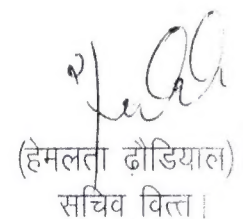 (हेमलता ढौडियाल)
सचिव वित्त।